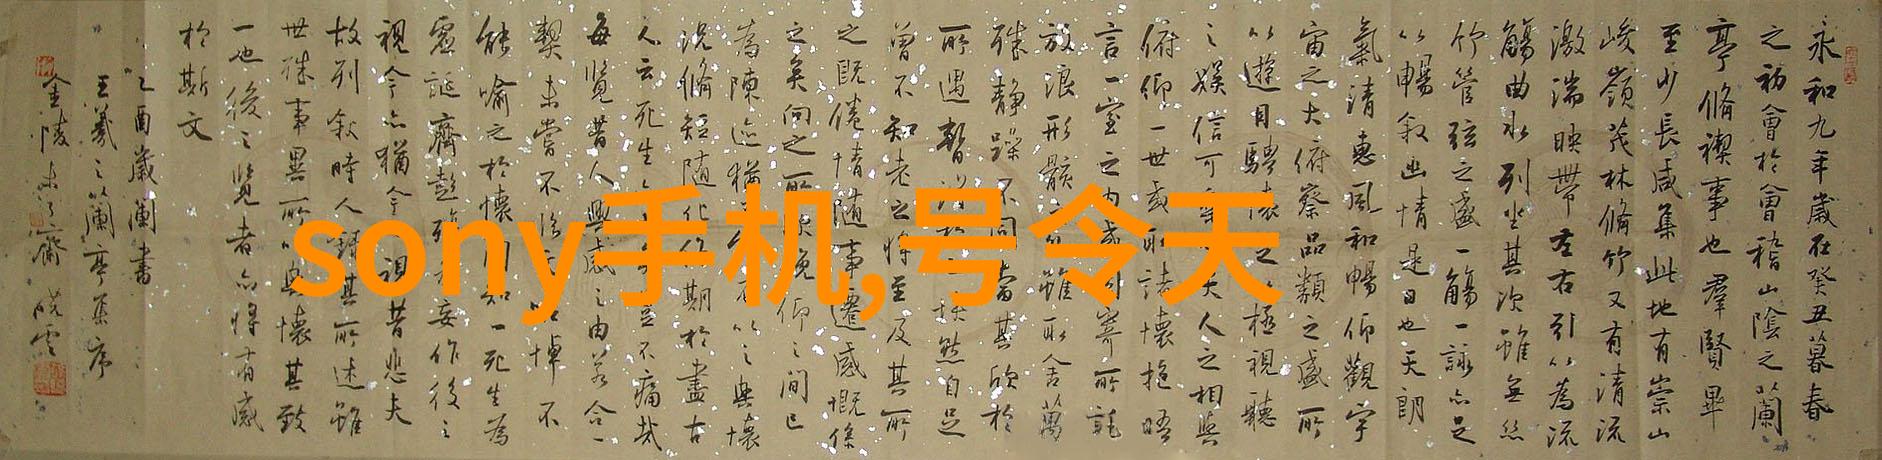 sony手机,号令天
永和九年歲在癸丑暮春
之初會於會稽山陰之蘭
亭脩禊事也羣賢畢
至少長咸集此地有崇山
峻嶺茂林脩竹又有清流
激湍映帶左右引以為流
觴曲水列坐其次雖無絲
竹管弦之盛一觴一詠亦足
以暢叙幽情是日也天朗
氣清惠風和暢仰觀宇
宙之大俯察品類之盛所
以遊目騁懷極視聽
之娛信可夫人之相與
俯仰一世或取諸懷抱晤
言一室之內或寄所託
放浪形骸雖取舍萬
殊靜躁不同當其欣於
所遇暫快然自足
曾不知老之將至及其所
之既倦情隨事遷感慨係
之矣向之所俛仰之間已
為陳迹猶以之興懷
況脩短隨化期於盡古
人云死生豈不痛哉
每覽昔人興感之由若合一
契未嘗不臨悼不
能喻之於懷知一死生為
虛誕齊彭殤妄作後之
視今亦猶今視昔悲夫
故列叙時人錄其所述雖
世殊事異所以興懷其致
一也後之覽者亦將有感
於斯文
乙酉歲蘭書
王羲之蘭亭集序
金陵